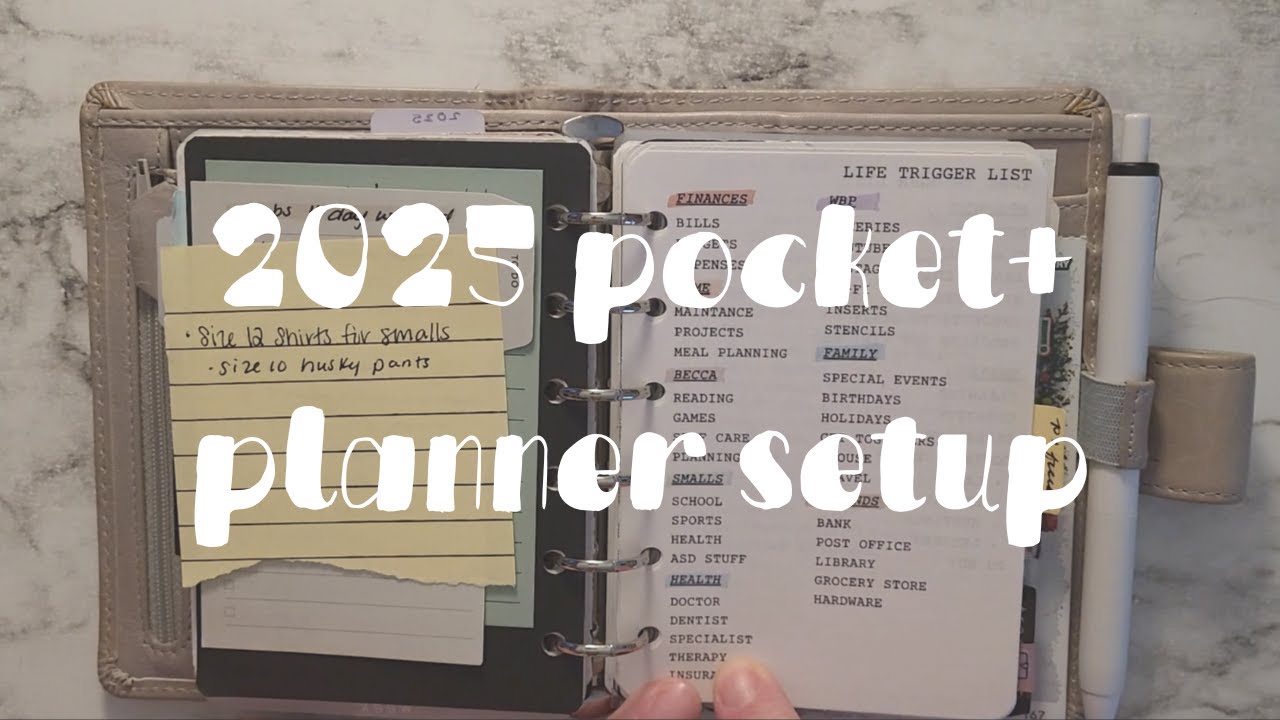 2025 pocket+
planner setup
2025
TO DO
• Size 12 shirts for smalls
• size 10 husky pants
LIFE TRIGGER LIST
FINANCES
BILLS
MAINTANCE
PROJECTS
MEAL PLANNING
BECCA
READING
GAMES
PLANNING
SMALLS
SCHOOL
SPORTS
HEALTH
ASD STUFF
HEALTH
DOCTOR
DENTIST
SPECIALIST
THERAPY
WBP
INSERTS
STENCILS
FAMILY
SPECIAL EVENTS
BIRTHDAYS
HOLIDAYS
BANK
POST OFFICE
LIBRARY
GROCERY STORE
HARDWARE
167